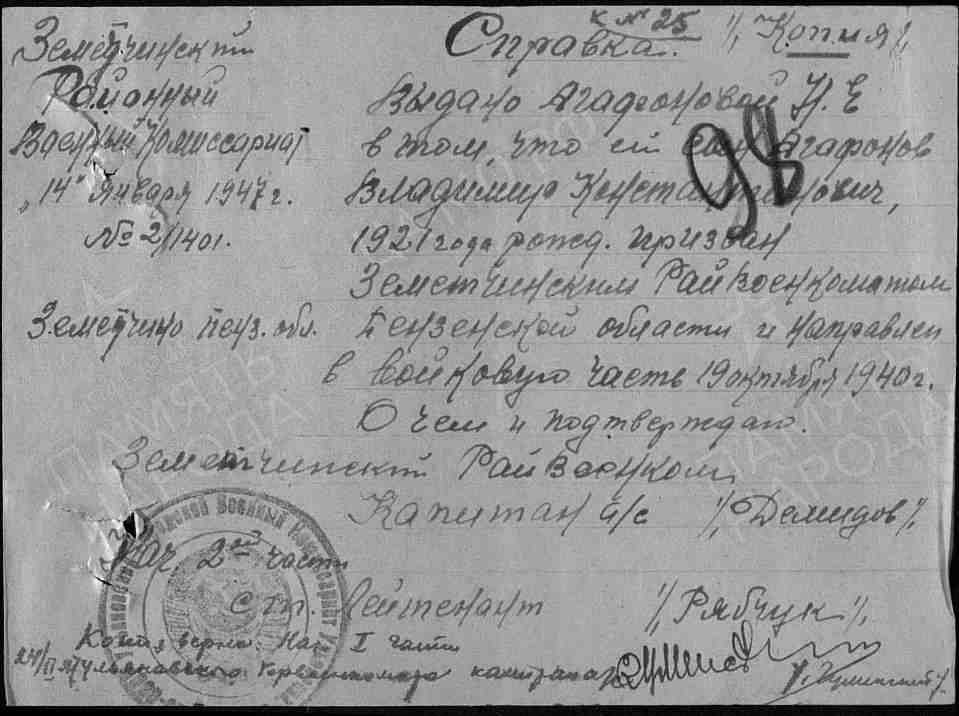 к № 25
Земетчинский
Районный
Военный Комиссариат
„14" января 1947 г.
№ 2/1401.
Земетчино Пенз. обл.
Справка. "Копия"
Выдано Агафоновой Н. Е
в том, что её сын Агафонов
Владимир Константинович,
1921 года рожд. призван
Земетчинским Райвоенкоматом
Пензенской области и направлен
в войсковую часть 19 октября 1940 г.
О чем и подтверждаю.
98
Земетчинский Райвоенком
Капитан и/с "Демидов"
Нач. 2ой части
Ст. Лейтенант "Рябчук"
Копия верна: Нач I части
Ульяновского Горвоенкомата капитан
ПАМЯТЬ НАРОДА